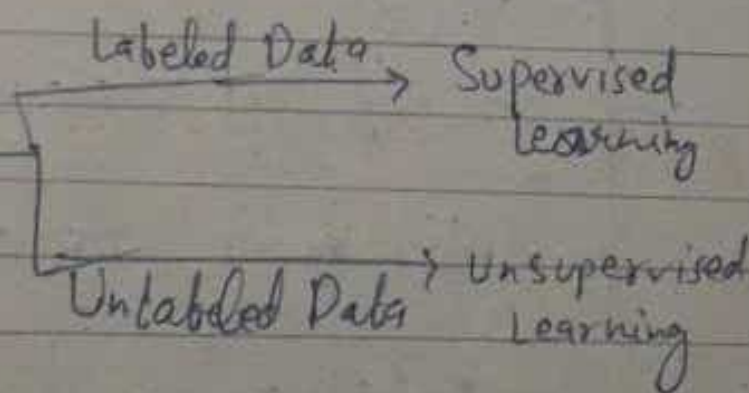 Labeled Data
Supervised
Learning
Unlabeled Data
Unsupervised
Learning